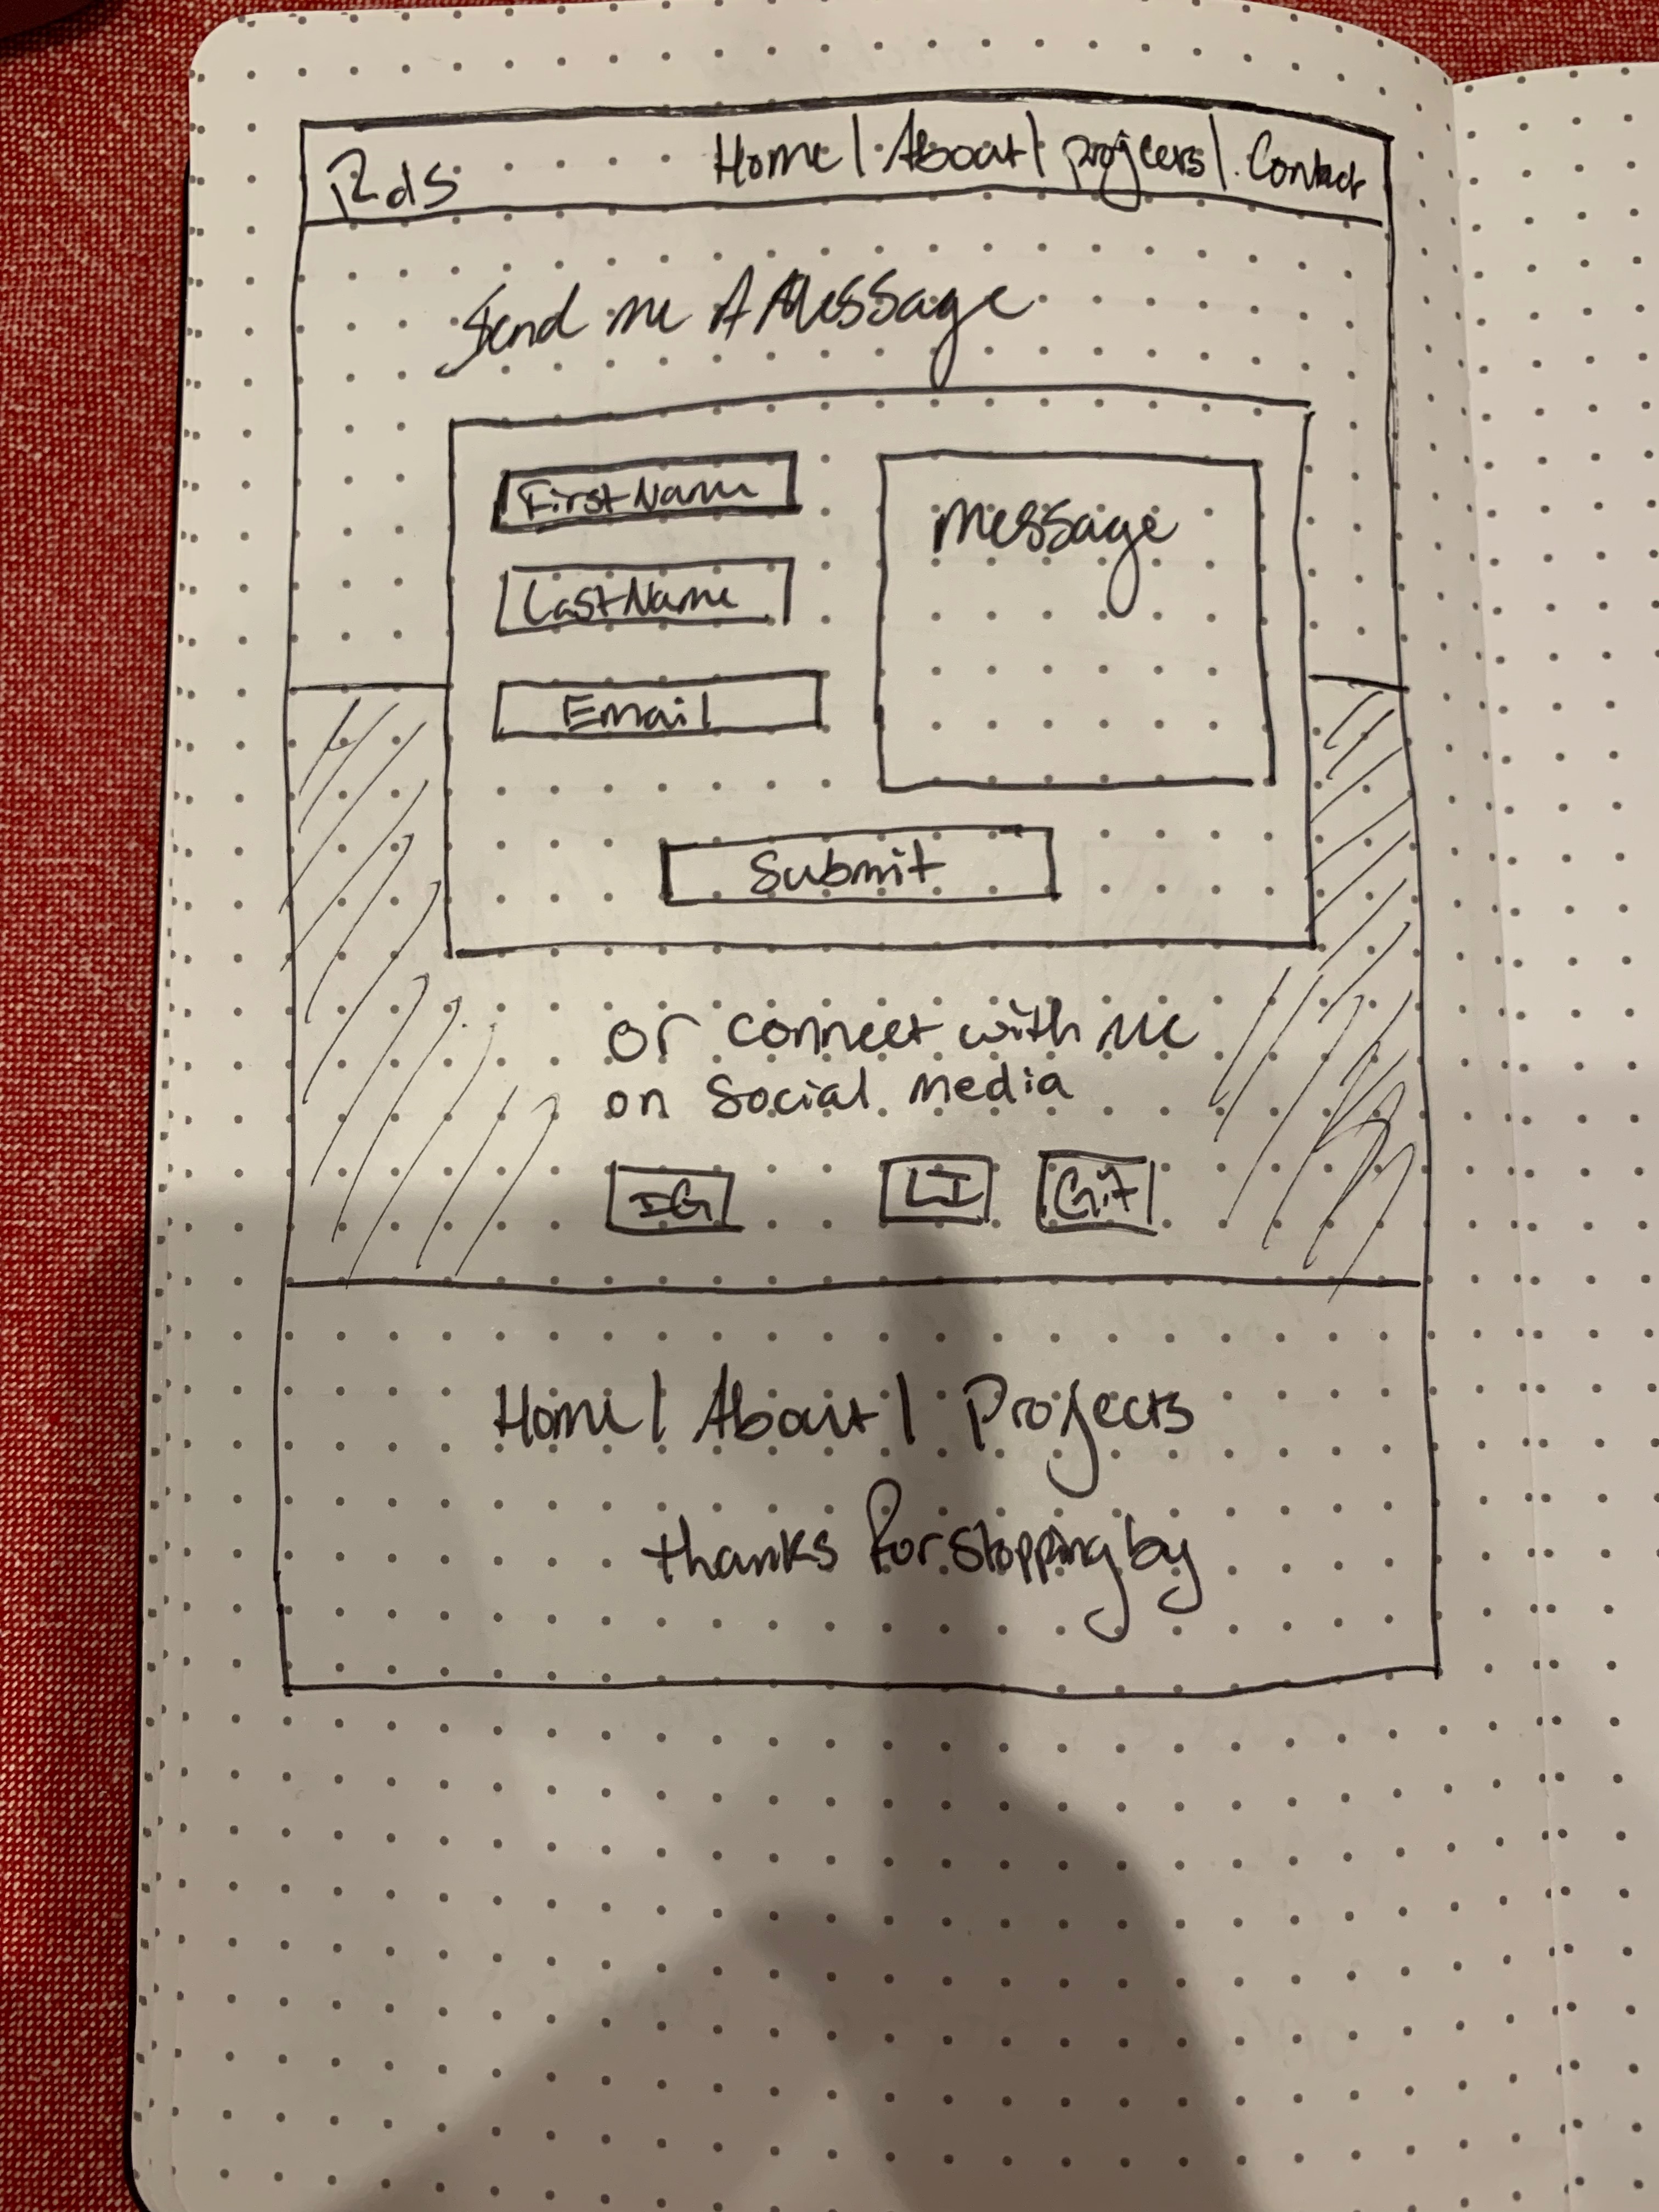 Rds Home | About | projects | Contact
Send me A Message
First Name
Last Name
Email
message
Submit
or connect with me
on Social media
IG LI Git
Home | About | Projects
thanks for stopping by